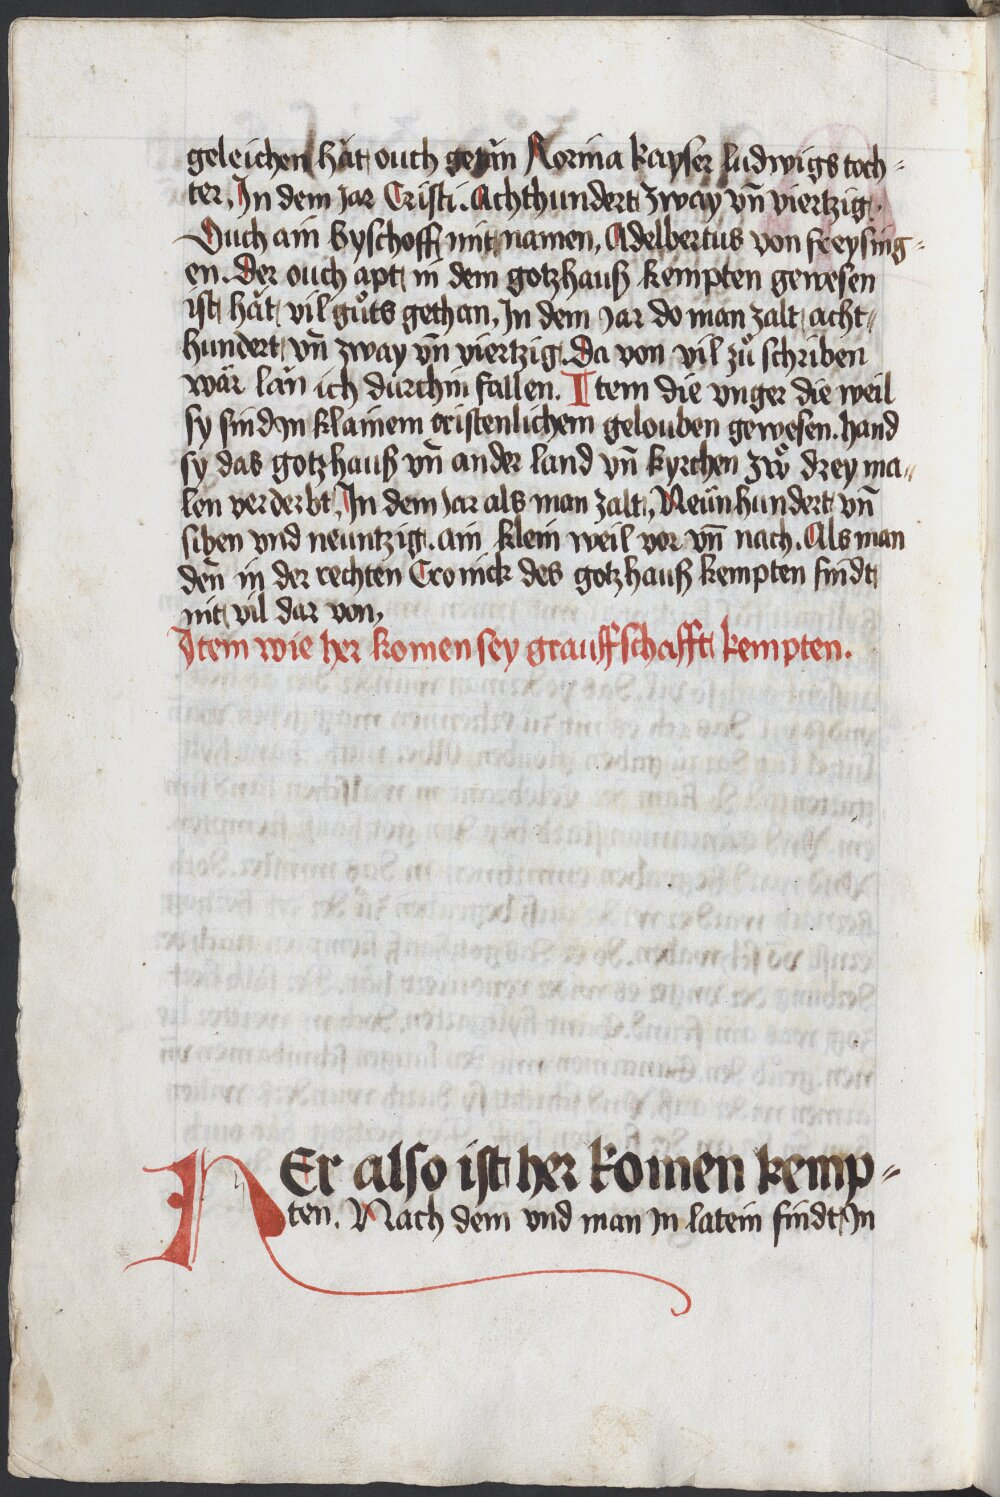 geleichen hät ouch getän Rorina kayser ludwigs toch-
ter. In dem Jar Cristi. Achthundert zway vn̄ viertzig.
Ouch ain byschoff mit namen, Adelbertus von freysing-
en. Der ouch apt in dem gotzhauß kempten gewesen
ist hät vil gůts gethan, In dem Jar do man zalt acht-
hundert vn̄ zway vn̄ viertzig. Da von vil zů schriben
wär län ich durchin fallen. Item die vnger die weil
sy sind in klainem cristenlichem gelouben gewesen. hand
sy das gotzhauß vn̄ ander land vn̄ kyrchen zwo̊ drey ma-
len verderbt, In dem Jar als man zalt, Neünhundert vn̄
siben vnd neuntzig. ain klein weil vor vn̄ nach. Als man
den̄ in der rechten Cronick des gotzhauß kempten findt
nit vil dar von,
Item wie her komen sey grauffschafft kempten.
Er also ist her komen kemp-
ten. Nach dem vnd man in latein findt In